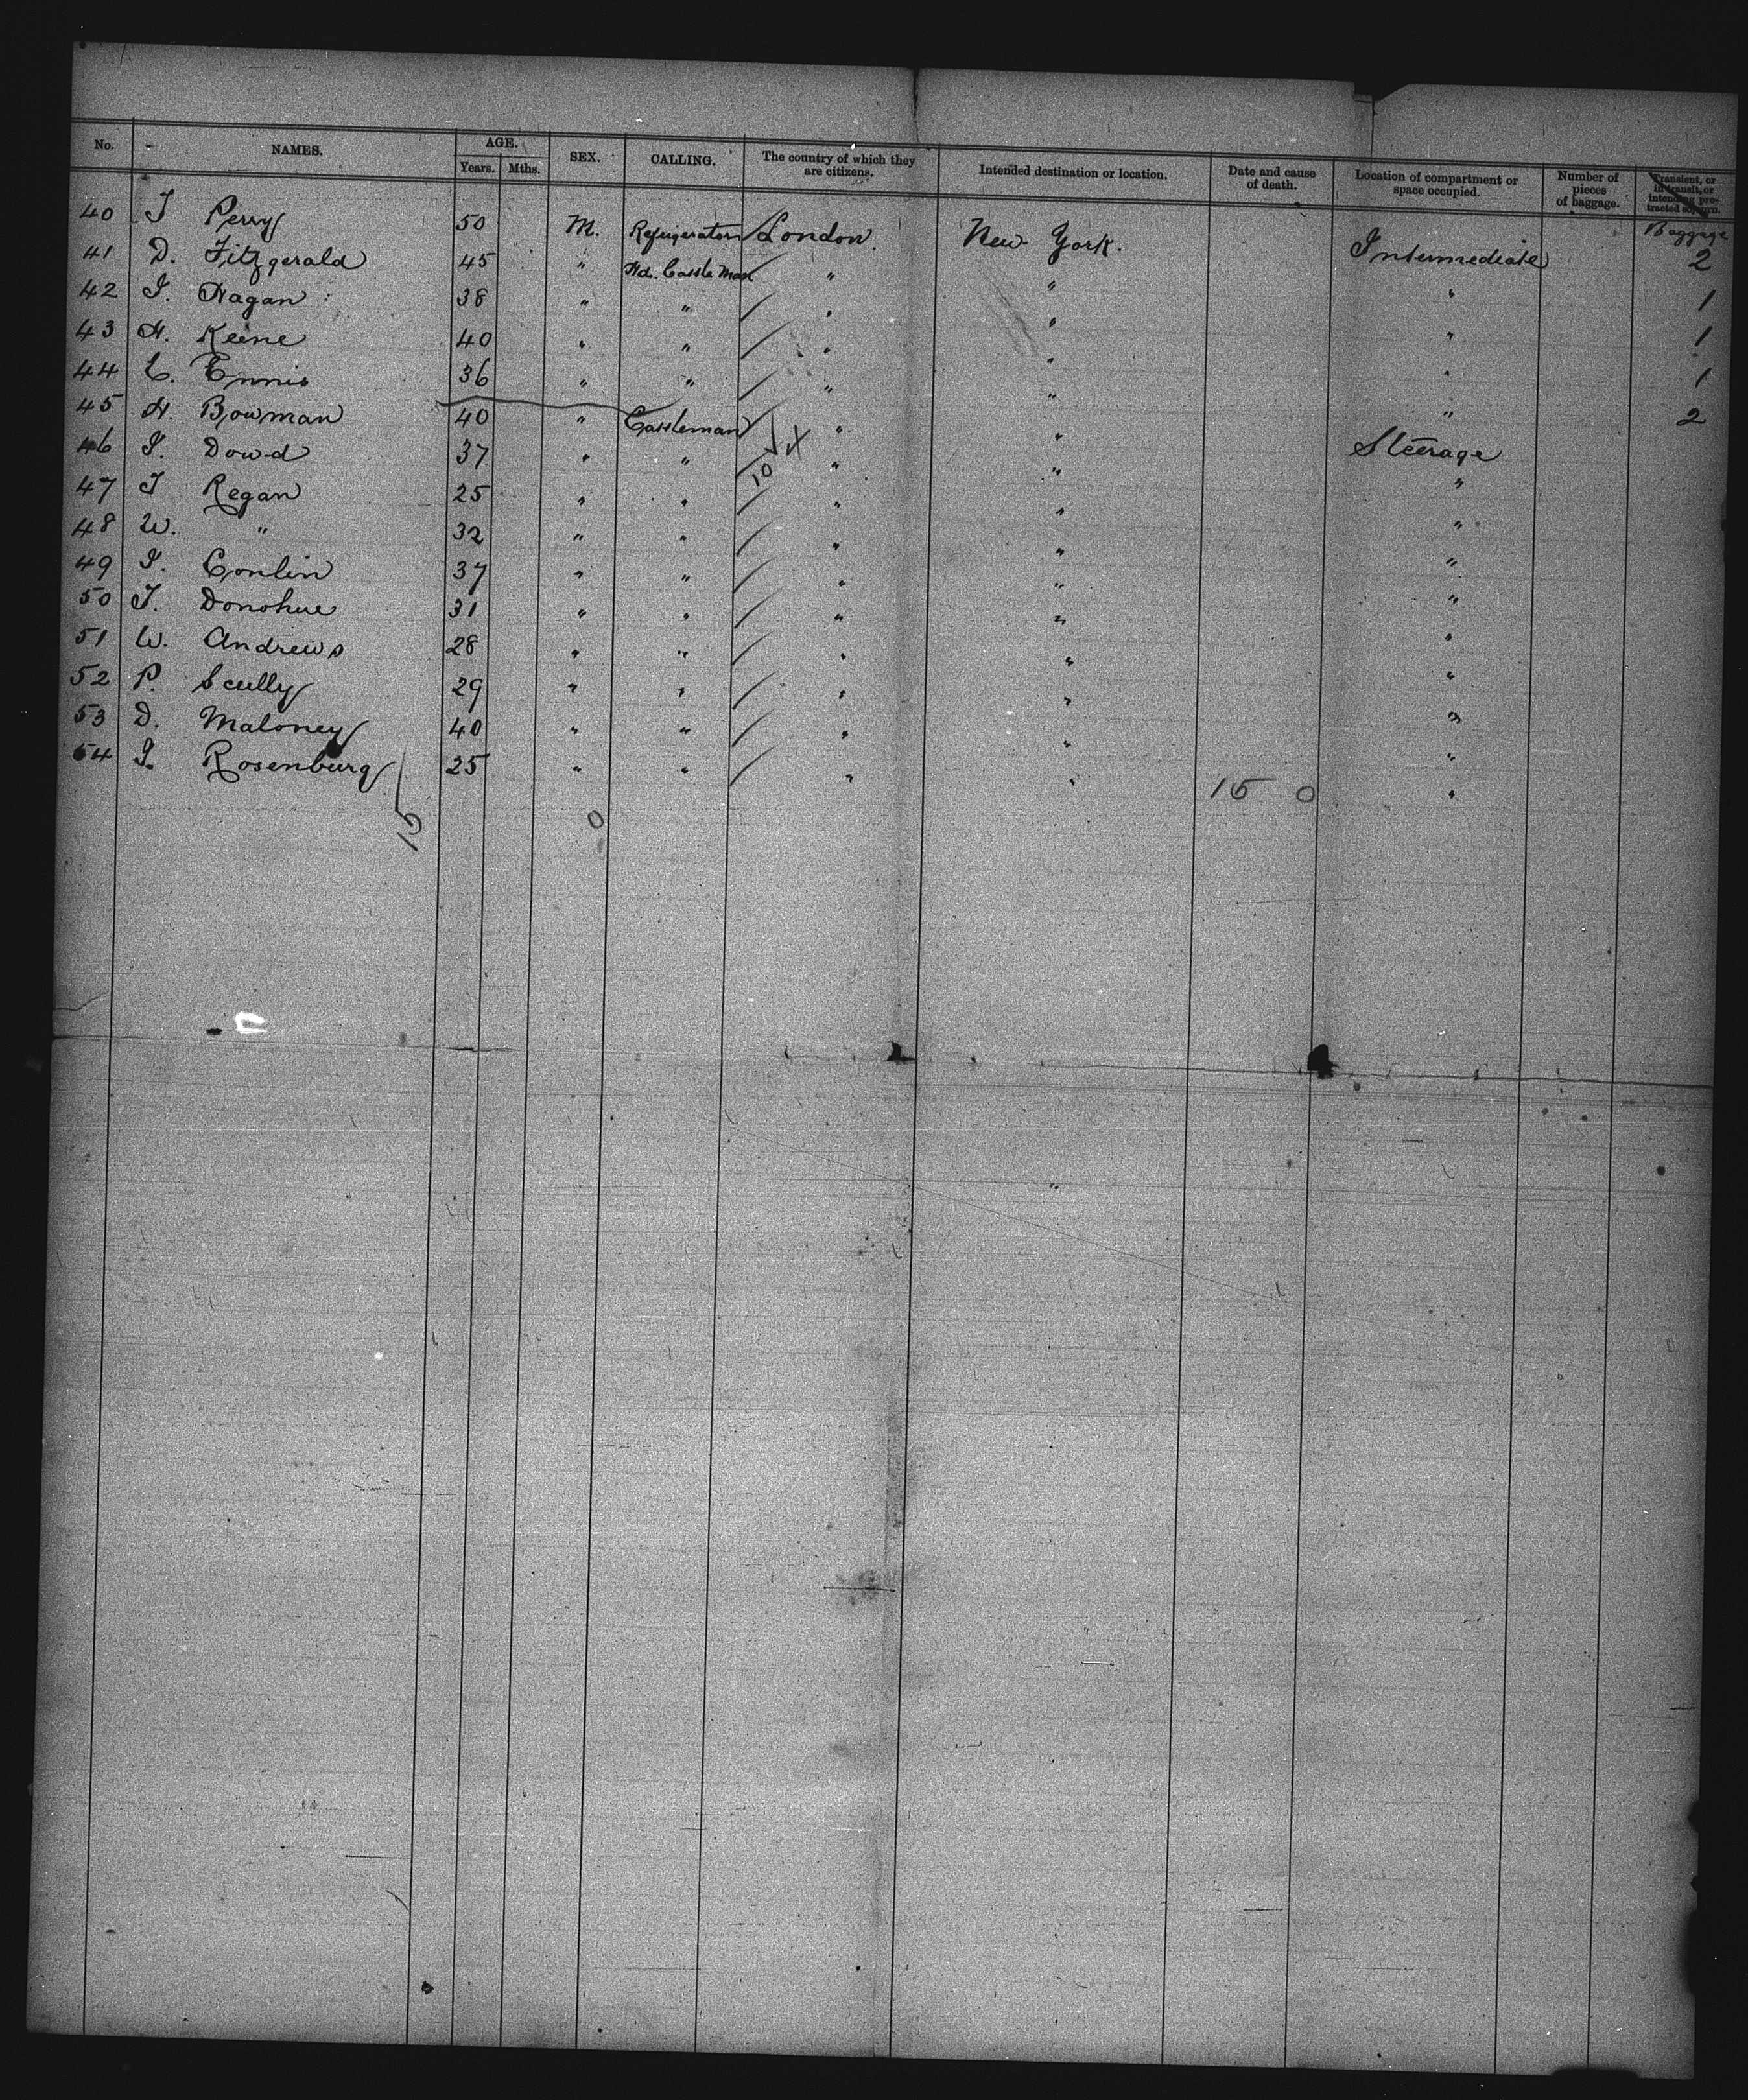 No. NAMES. AGE. Years. Mths. SEX. CALLING. The country of which they are citizens. Intended destination or location. Date and cause of death. Location of compartment or space occupied. Number of pieces of baggage. Transient, or in transit, or intending protracted sojourn.
Baggage
40 T Perry 50 M. Refrigerator London. New York. Intermediate 2
41 D. Fitzgerald 45 " Hd. Cattle Man " " " 1
42 J. Hagan 38 " " " " " 1
43 H. Keene 40 " " " " " 1
44 E. Ennis 36 " " " " " 2
45 H. Bowman 40 " Cattleman " " Steerage
46 J. Dowd 37 " " 10 " " "
47 J Regan 25 " " " " "
48 W. " 32 " " " " "
49 J. Conlin 37 " " " " "
50 J. Donohue 31 " " " " "
51 W. Andrews 28 " " " " "
52 P. Scully 29 " " " " "
53 D. Maloney 40 " " " " "
54 J. Rosenburg 25 " " " " "
15 0
15 0